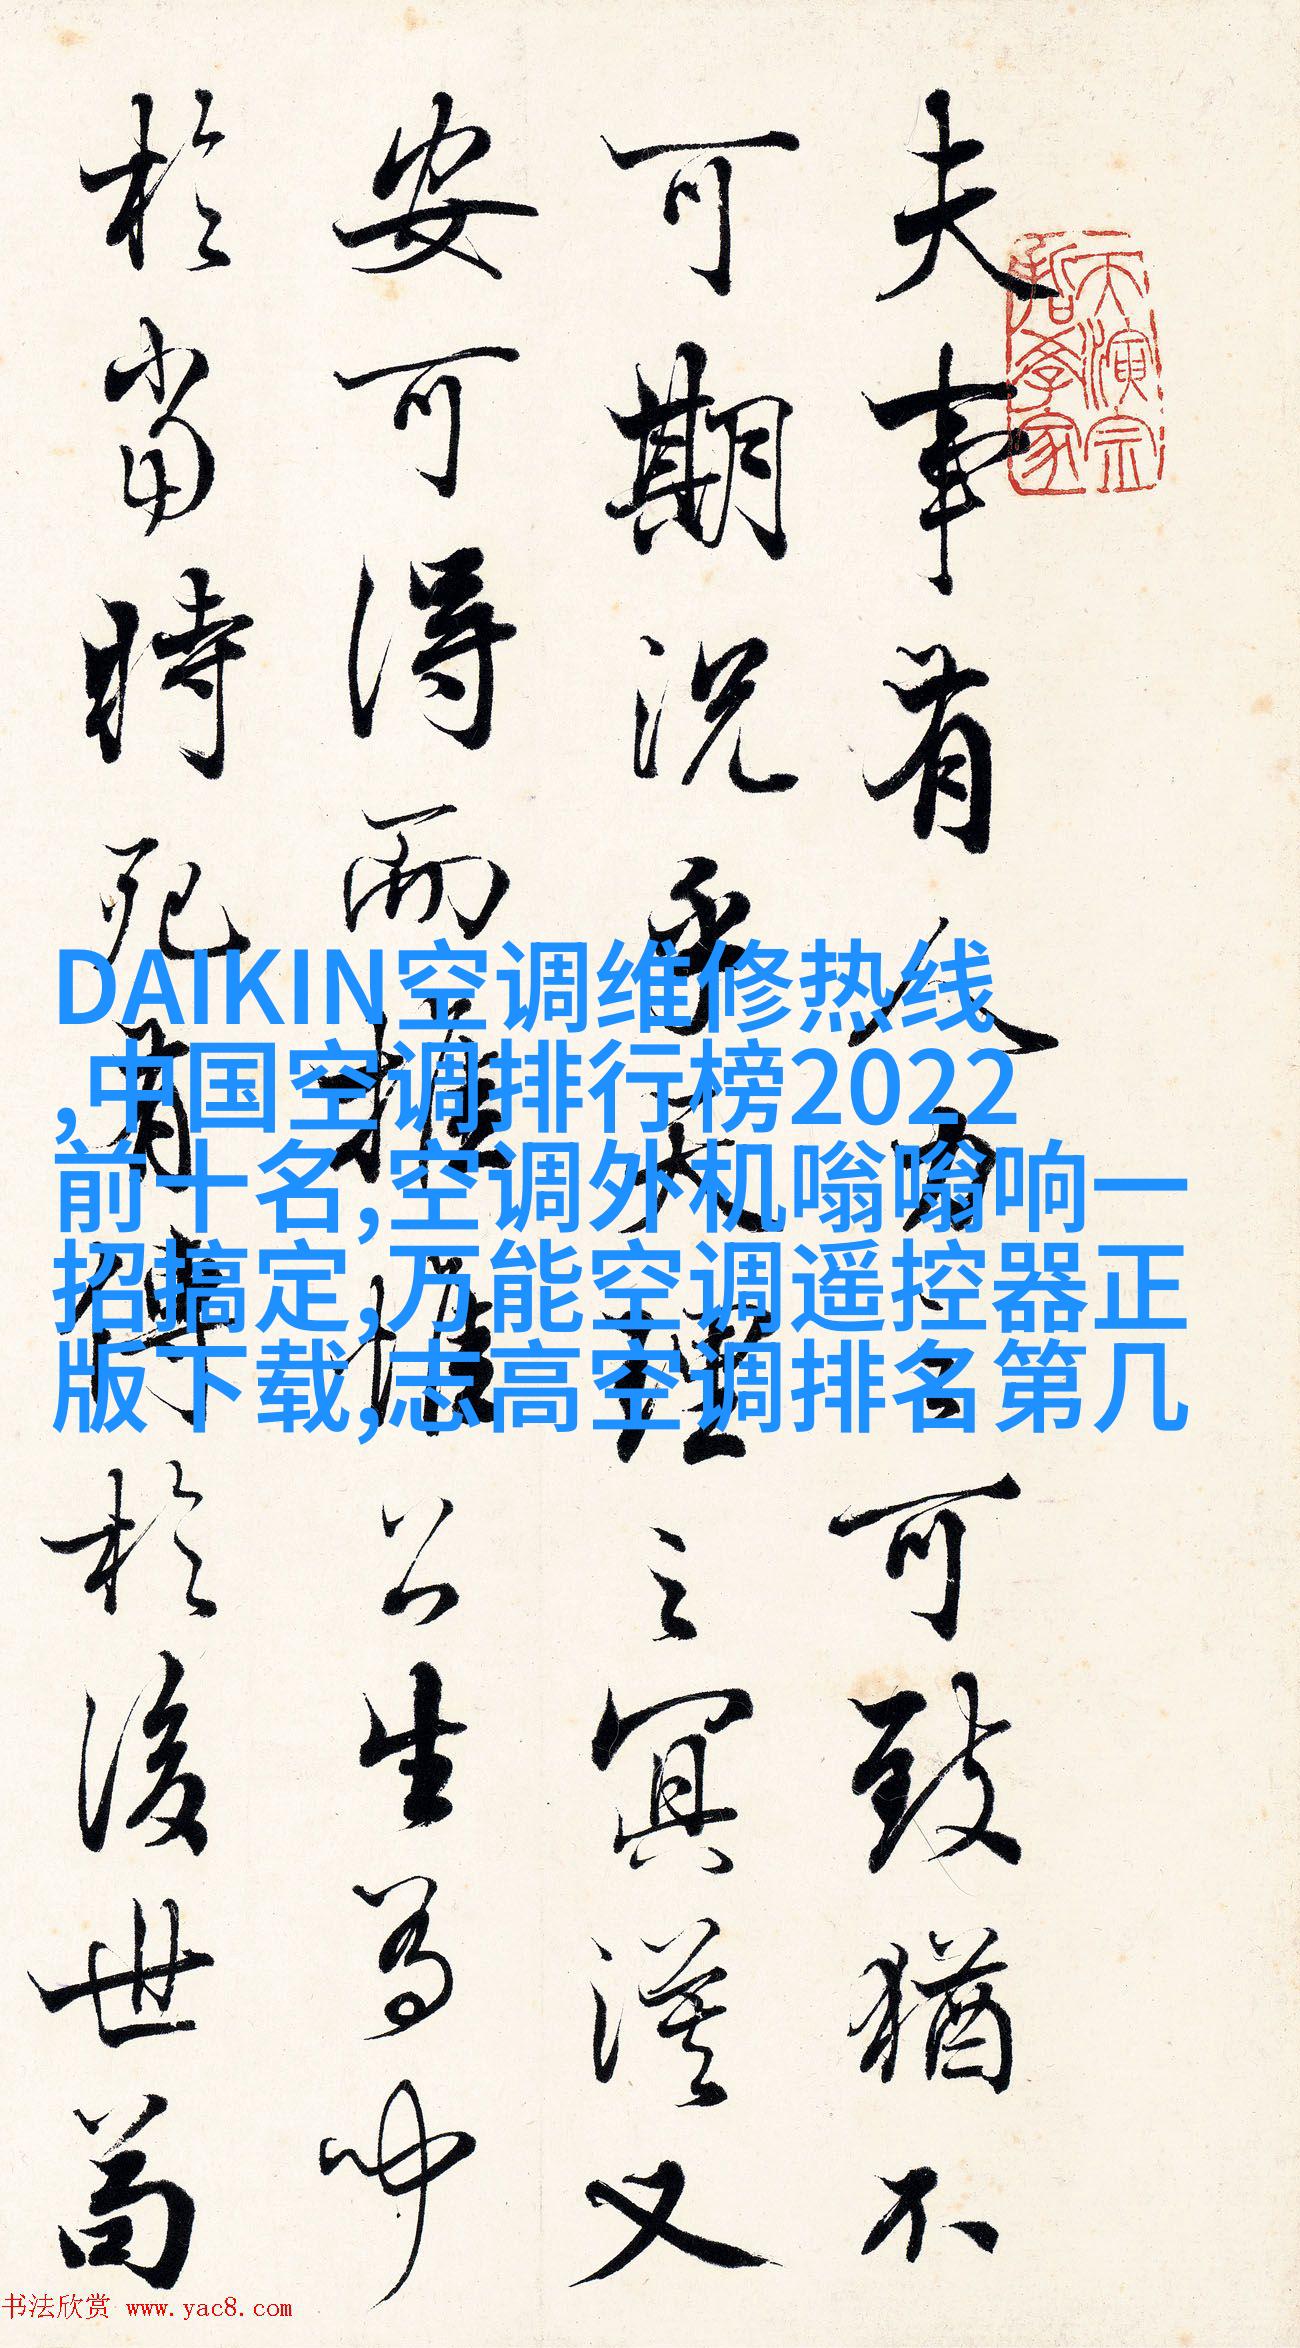 夫事有人力之可致猶不
可期況乎天理之冥漠又
安可得而推惟公生有聞
於當時死有傳於後世苟
天演宗
哲學家
DAIKIN空调维修热线
,中国空调排行榜2022
前十名,空调外机嗡嗡响一
招搞定,万能空调遥控器正
版下载,志高空调排名第几
书法欣赏 www.yac8.com